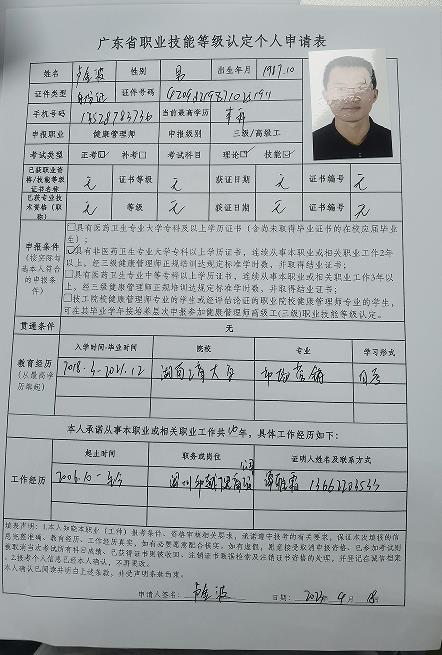 广东省职业技能等级认定个人申请表
姓名 性别 男 出生年月 1987.10
证件类型 身份证 证件号码
手机号码 当前最高学历 本科
申报职业 健康管理师 申报级别 三级/高级工
考试类型 正考☑ 补考□ 考试科目 理论☑ 技能☑
已获职业资格/技能等级证书名称 无 证书等级 无 获证日期 无 证书编号 无
已获专业技术资格(职称) 无 等级 无 获证日期 无 证书编号 无
申报条件(按实际勾选本人符合的申报条件)
□具有医药卫生专业大学专科及以上学历证书(含尚未取得毕业证书的在校应届毕业生);
☑具有非医药卫生专业大学专科以上学历证书,连续从事本职业或相关职业工作2年以上,经三级健康管理师正规培训达规定标准学时数,并取得结业证书;
□具有医药卫生专业中等专科以上学历证书,连续从事本职业或相关职业工作3年以上,经三级健康管理师正规培训达规定标准学时数,并取得结业证书;
□技工院校健康管理师专业的学生或经评估论证的职业院校健康管理师专业的学生,可在其毕业学年按培养层次申报参加健康管理师高级工(三级)职业技能等级认定。
贯通条件 无
教育经历(从最高学历填起)
入学时间-毕业时间 院校 专业 学习形式
大学 自考
本人承诺从事本职业或相关职业工作共 年,具体工作经历如下:
工作经历
起止时间 职务或岗位 证明人姓名及联系方式
2006.10-至今
填表声明:1.本人知晓本职业(工种)报考条件、资格审核相关要求,承诺遵守报考的有关要求,保证本次填报的信息完整准确、教育经历、工作经历真实,如有必要愿意配合核实。如有虚假,愿意接受取消申报资格、已参加考试则被取消当次考试所有科目成绩、已获得证书则被收回、注销证书数据检索及注销证书资格的处理,并登记在诚信档案
2.报考个人信息已经本人确认,不再更改。
本人确认已阅读并明白上述条款,并受声明条款约束。
申请人签名: 日期: 年9月18日